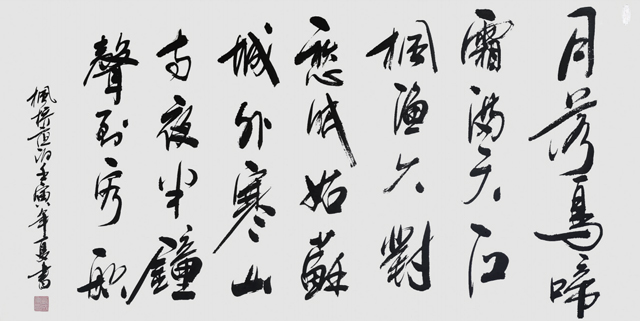 月落烏啼
霜滿天江
楓漁火對
愁眠姑蘇
城外寒山
寺夜半鐘
聲到客船
楓橋夜泊壬寅年夏書